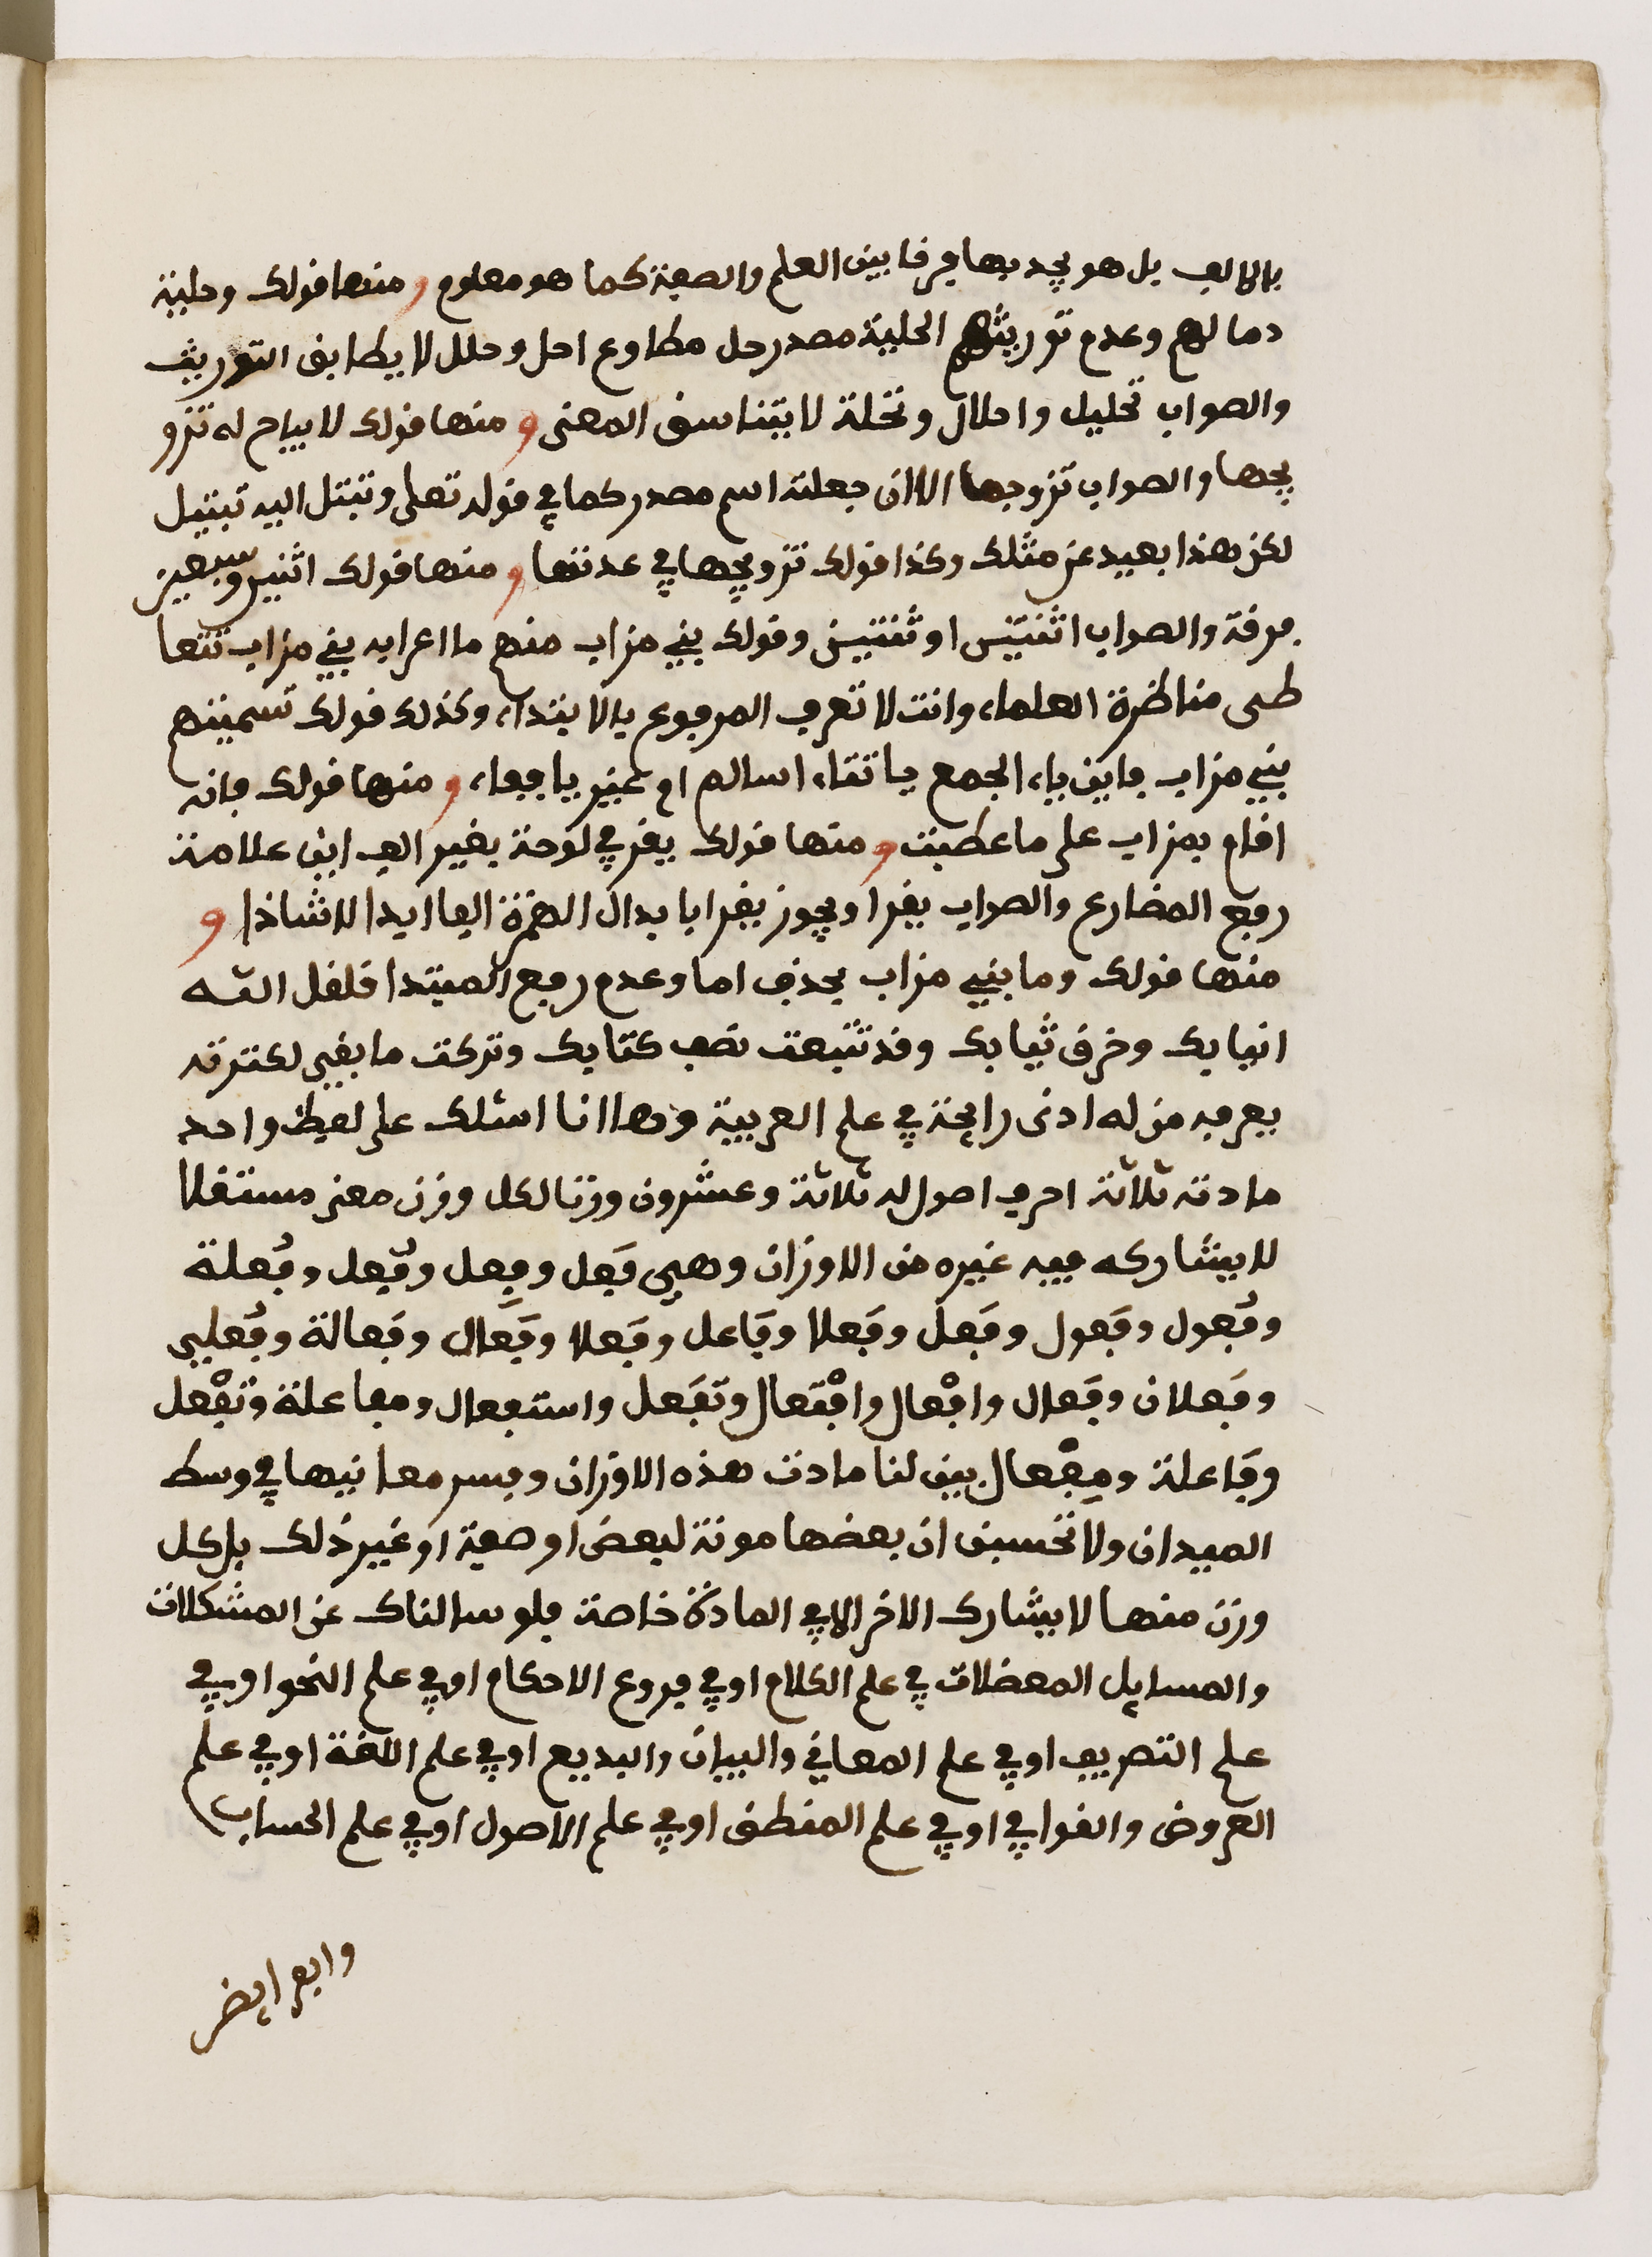 بالالف بل هو بحد بها فرفا بين العلم والصفة كما هو معلوم و منها قولك وحلية
دمالهم وعدم توريثهم الحلية مصدر حل مطاوع احل وحلل لا يطابق التوريث
والصواب تحليل واحلال وتحلة لا يتناسق المعنى و منها قولك لا يباح له تزو
يجها والصواب تزوجها الا ان جعلته اسم مصدر كما في قوله تعلى وتبتل اليه تبتيل
لكن هذا بعيد عن مثلك وكذا قولك تزويجها في عدتها و منها قولك اثنين وسبعين
فرقة والصواب اثنتين او ثنتين وقولك بني مزاب منهم ما اعرابه بني مزاب تتعا
طى مناظرة العلماء وانت لا تعرف المرفوع بالابتداء وكذلك قولك تسميتهم
بني مزاب فاين ياء الجمع ياتفاء اسالم ام غير يا ففاء و منها قولك فانه
اقام بمزاب على ما عطبت و منها قولك يقر في لوحة بغير الف اين علامة
رفع المضارع والصواب يقرا ويجوز يقرا بابدال الهمزة الفا ابدا لا شاذا و
منها قولك وما بني مزاب بحذف اما وعدم رفع المبتدا قلقل الله
انيابك وخرق ثيابك وقد تتبعت نصف كتابك وتركت ما بقي لكثرته
يعرفه من له ادنى رايحة في علم العربية وها انا اسئلك على لفظ واحد
مادته ثلاثة احرف اصول له ثلاثة وعشرون وزنا لكل وزن معنى مستقلا
لا يشاركه فيه غيره من الاوزان وهي فَعل وفِعل وفُعل وفُعلة
وفُعول وفَعول وفَعل وفَعلا وفَاعل وفَعلا وفَعال وفَعالة وفُعليى
وفَعلان وفَعال وافْعال وافْتعال وتفَعل واستفعال ومفاعلة وتفْعل
وفَاعلة ومِفْعال بين لنا مادت هذه الاوزان وفسر معانيها في وسط
الميدان ولا تحسبن ان بعضها مونة لبعض او صفة او غير ذلك بل كل
وزن منها لا يشارك الاخر الا في المادة خاصة فلو سالناك عن المشكلات
والمسايل المعضلات في علم الكلام او في فروع الاحكام او في علم النحو او في
علم التصريف او في علم المعاني والبيان والبديع او في علم اللغة او في علم
العروض والقوافي او في علم المنطق او في علم الاصول او في علم الحساب
والفرايض